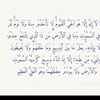 اللَّهُ لَا إِلَٰهَ إِلَّا هُوَ الْحَيُّ الْقَيُّومُ لَا تَأْخُذُهُ سِنَةٌ وَلَا نَوْمٌ لَهُ مَا
فِي السَّمَوَاتِ وَمَا فِي الْأَرْضِ مَنْ ذَا الَّذِي يَشْفَعُ عِنْدَهُ
إِلَّا بِإِذْنِهِ يَعْلَمُ مَا بَيْنَ أَيْدِيهِمْ وَمَا خَلْفَهُمْ وَلَا يُحِيطُونَ
بِشَيْءٍ مِنْ عِلْمِهِ إِلَّا بِمَا شَاءَ وَسِعَ كُرْسِيُّهُ السَّمَوَاتِ
وَالْأَرْضَ وَلَا يَئُودُهُ حِفْظُهُمَا وَهُوَ الْعَلِيُّ الْعَظِيمُ